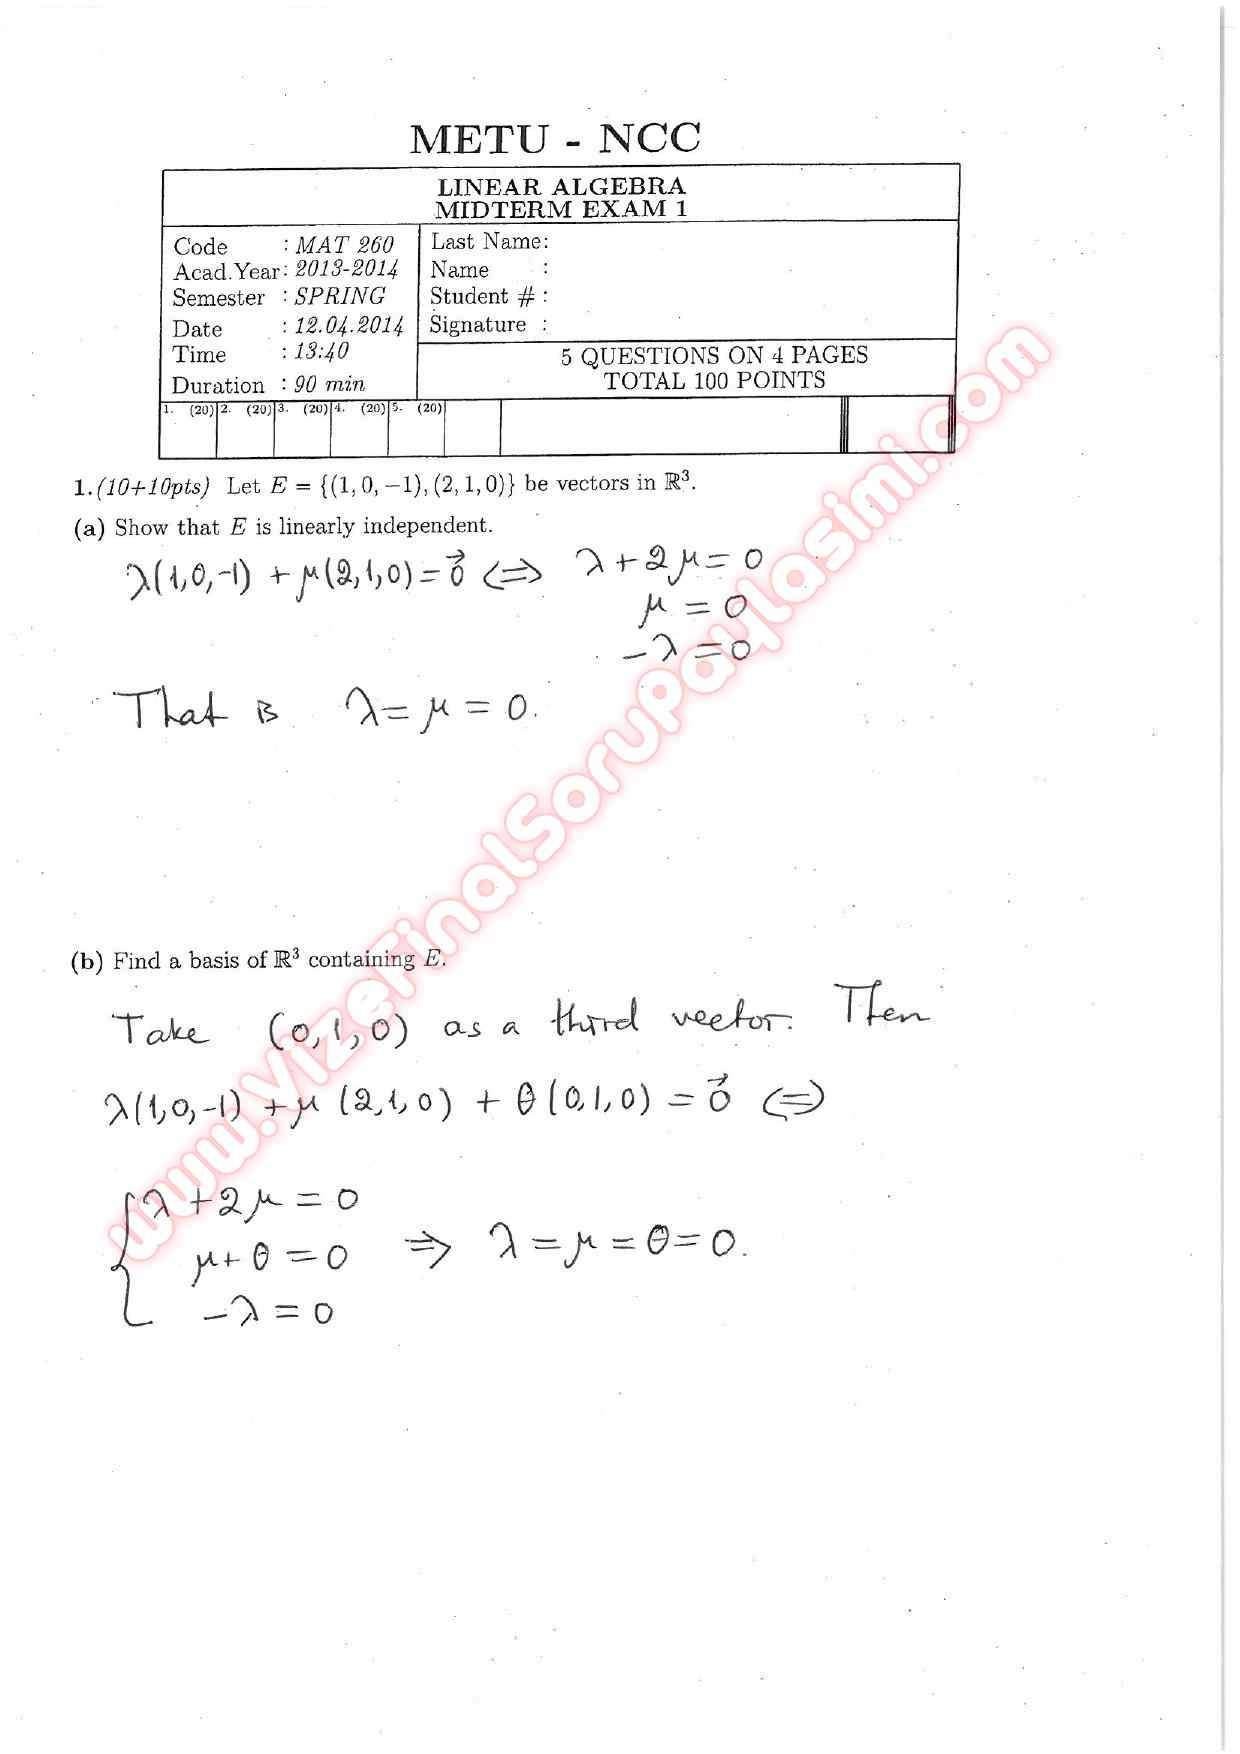 METU - NCC
LINEAR ALGEBRA
MIDTERM EXAM 1
Code : MAT 260
Acad.Year: 2013-2014
Semester : SPRING
Date : 12.04.2014
Time : 13:40
Duration : 90 min
Last Name:
Name :
Student # :
Signature :
5 QUESTIONS ON 4 PAGES
TOTAL 100 POINTS
1. (20) 2. (20) 3. (20) 4. (20) 5. (20)
1.(10+10pts) Let E = {(1, 0, −1), (2, 1, 0)} be vectors in ℝ³.
(a) Show that E is linearly independent.
λ(1,0,-1) + μ(2,1,0) = 0⃗ ⇔ λ + 2μ = 0
μ = 0
-λ = 0
That is λ = μ = 0.
(b) Find a basis of ℝ³ containing E.
Take (0,1,0) as a third vector. Then
λ(1,0,-1) + μ(2,1,0) + θ(0,1,0) = 0⃗ ⇔
λ + 2μ = 0
μ + θ = 0 ⇒ λ = μ = θ = 0.
-λ = 0
www.VizeFinalSoruPaylasimi.com